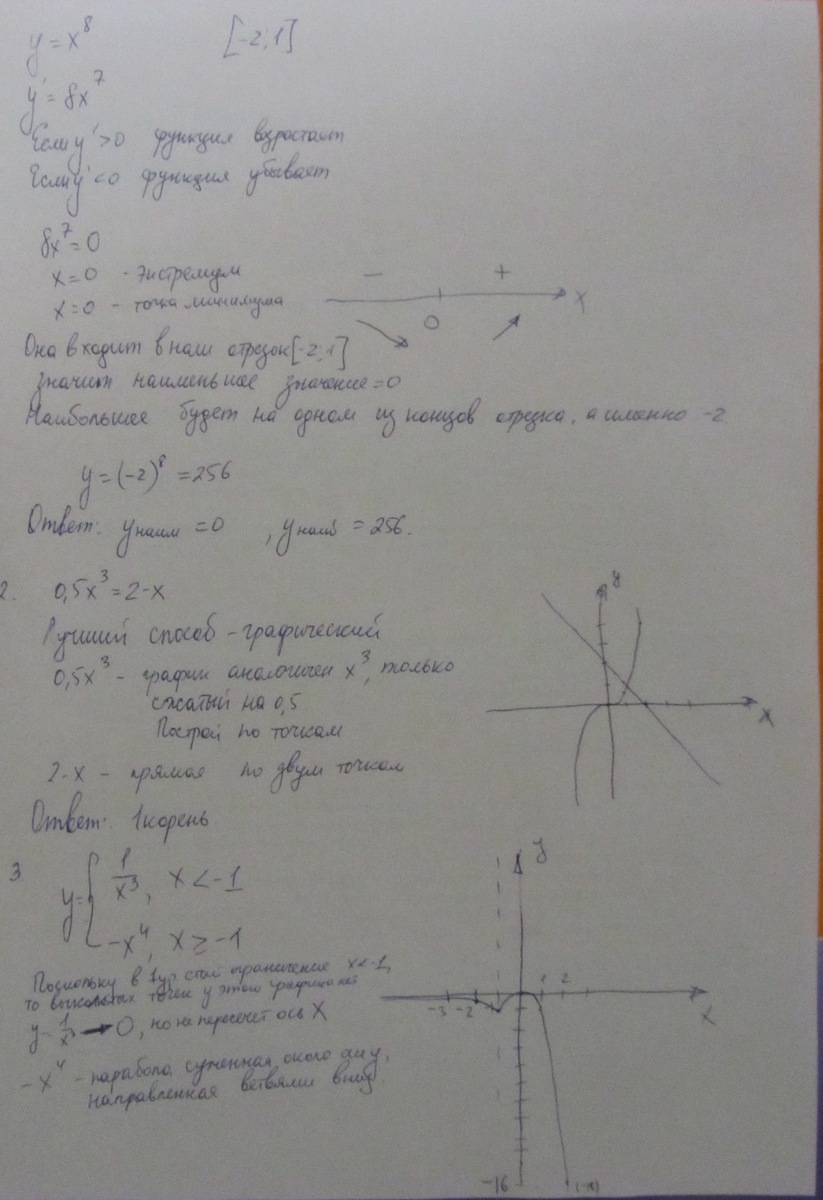 y = x⁸ [-2; 1]
y' = 8x⁷
Если y' > 0 функция возрастает
Если y' < 0 функция убывает
8x⁷ = 0
x = 0 - экстремум
x = 0 - точка минимума
- +
0 X
Она входит в наш отрезок [-2; 1]
значит наименьшее значение = 0
Наибольшее будет на одном из концов отрезка, а именно -2
y = (-2)⁸ = 256
Ответ: y наим = 0, y наиб = 256.
2. 0,5x³ = 2-x
Лучший способ - графический
0,5x³ - график аналогичен x³, только
сжатый на 0,5
Построй по точкам
2-x - прямая по двум точкам
y
X
Ответ: 1 корень
3. y = { 1/x³, x < -1
-x⁴, x ≥ -1
Поскольку в 1 ур. стоит ограничение x < -1,
то выколотых точек у этого графика нет
y = 1/x³ → 0, но не пересечет ось X
-x⁴ - парабола суженная около оси y,
направленная ветвями вниз.
y
-3 -2 1 2
X
-16